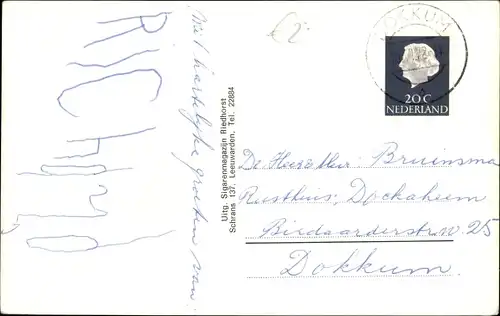 Met hartelijke groeten van
RiChARD
Uitg. Sigarenmagazijn Riedhorst
Schrans 137, Leeuwarden, Tel. 22884
DOKKUM
20 C
NEDERLAND
De Heer Bruinsma
Rusthuis; Dockaheim
25
Dokkum.